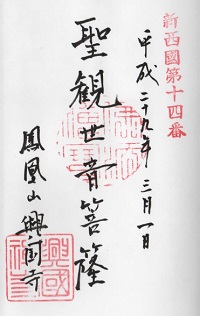 新西國第十四番
平成二十九年三月一日
聖観世音菩薩
鳳凰山 興国寺